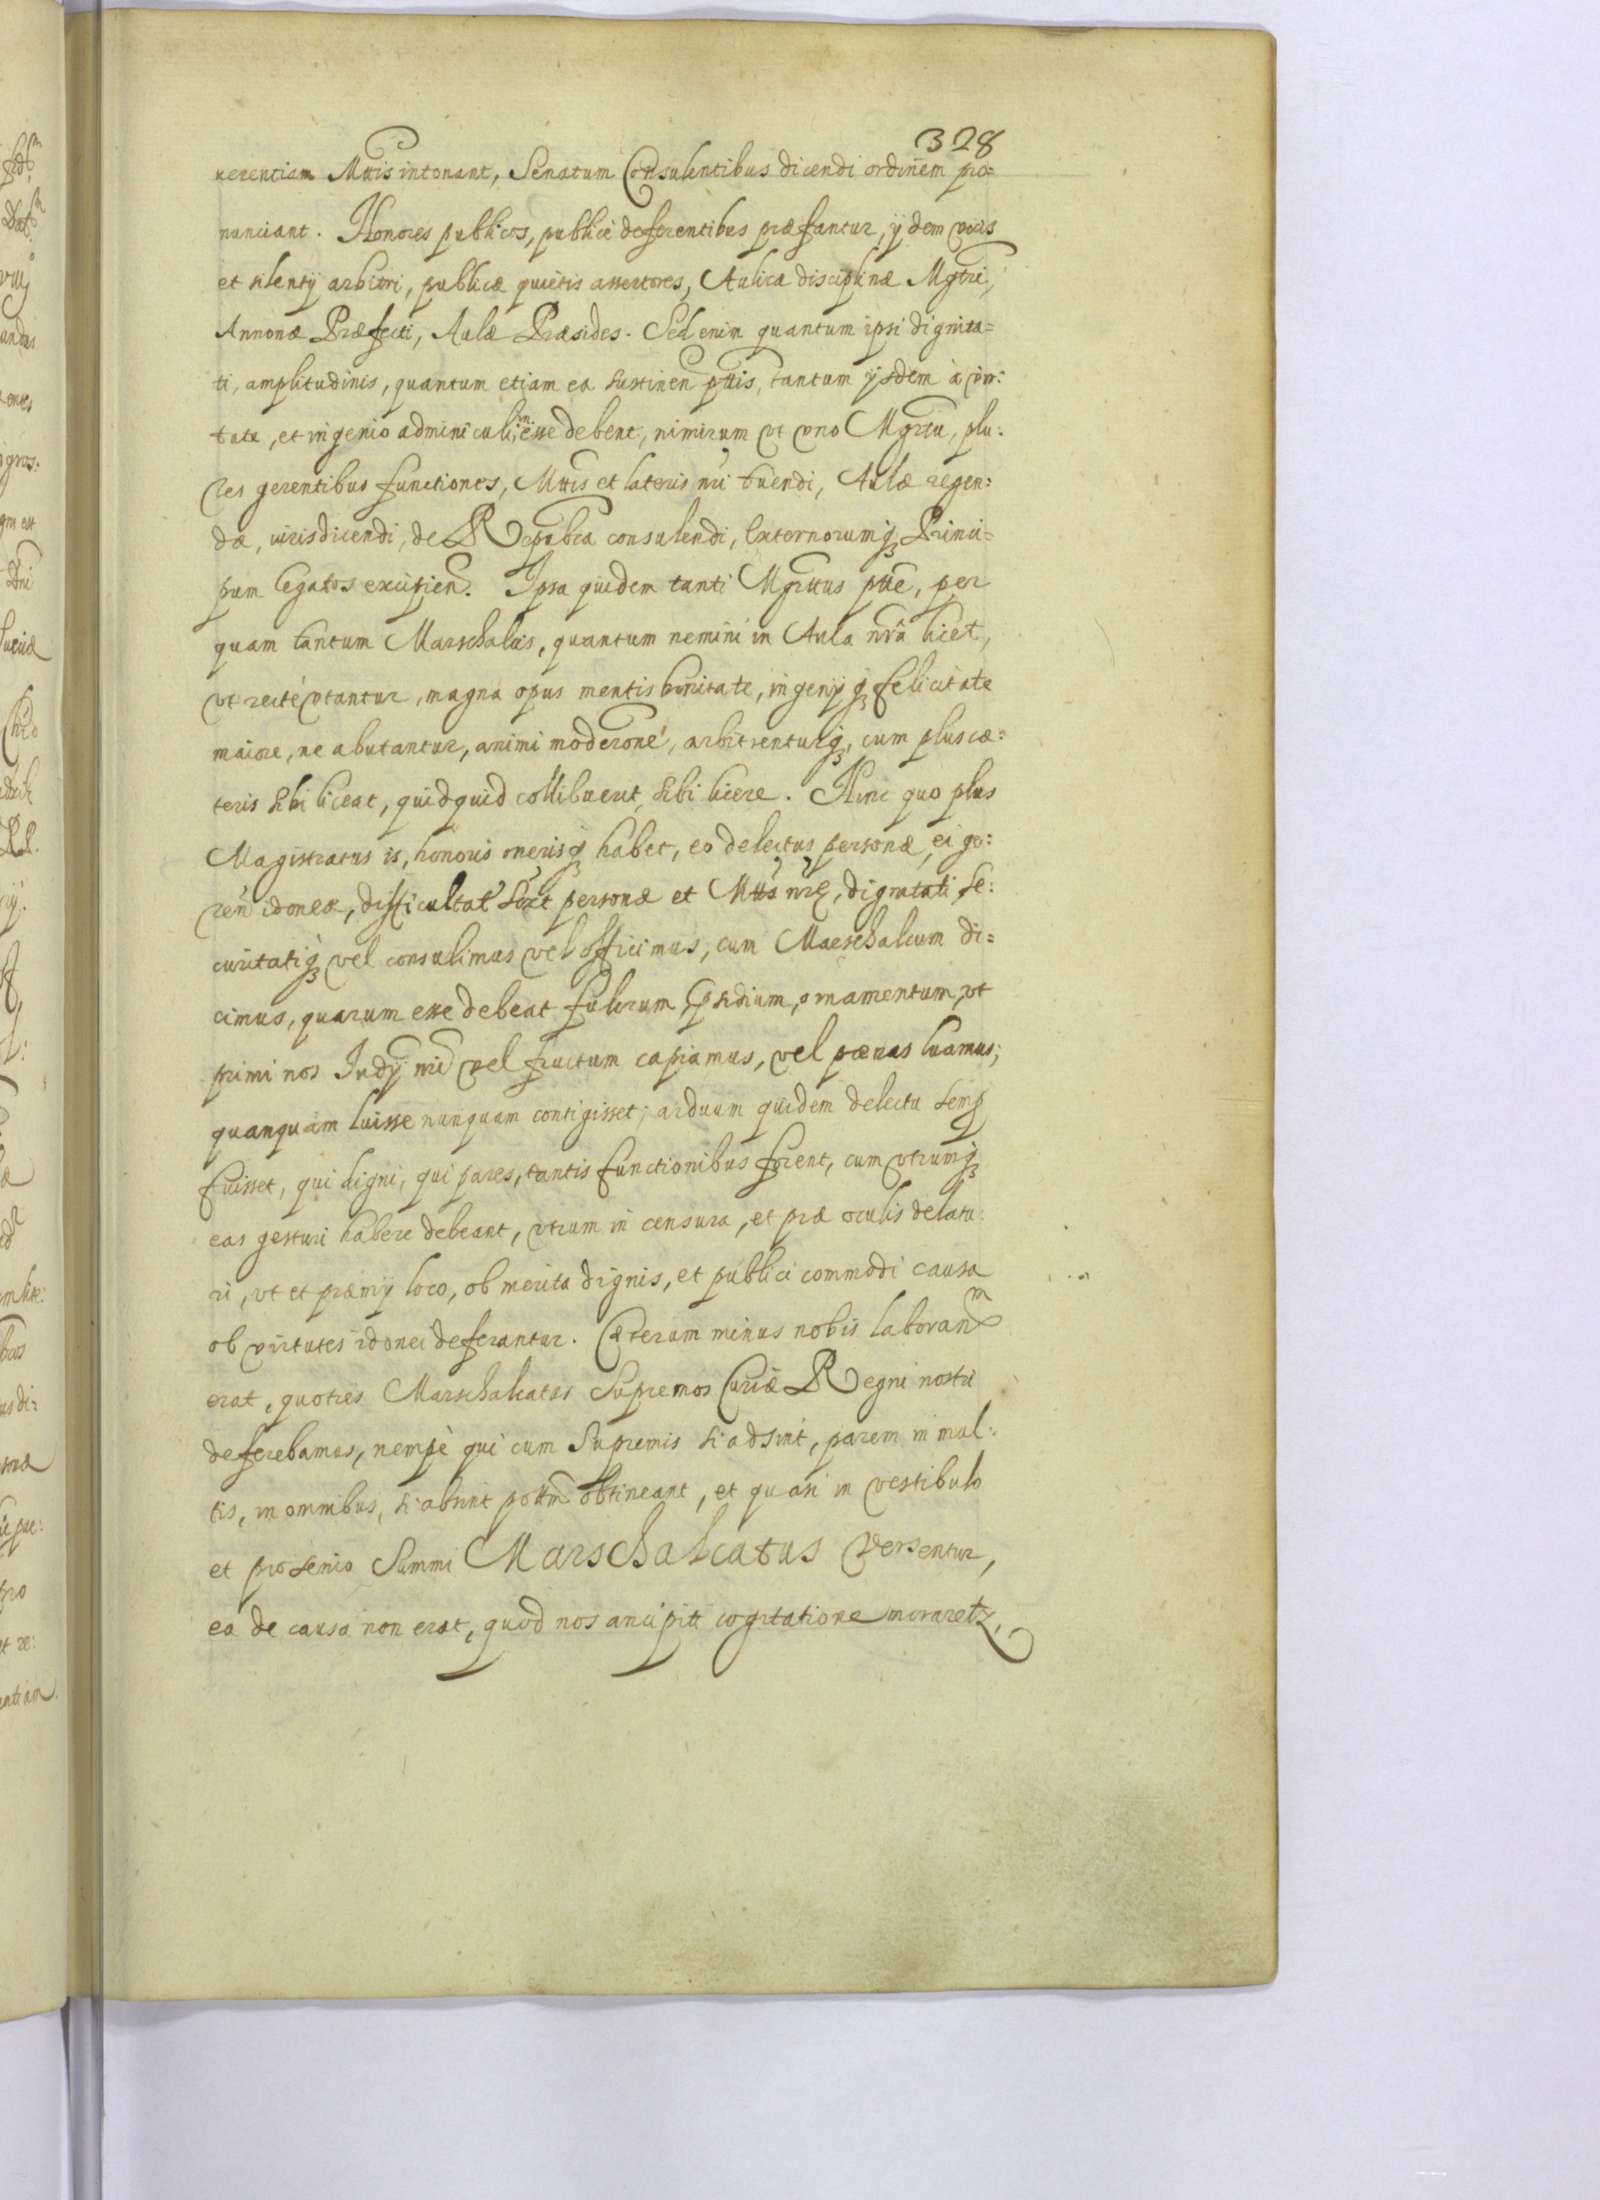 328
uerentiam Mttis intonant, Senatum Consulentibus dicendi ordinem pro=
nunciant. Honores publicos, publicè deferentibus præfantur, ijdem vocis
et silentij arbitri, publicæ quietis assertores, Aulicæ disciplinæ Mgtri,
Annonæ Præfecti, Aulæ Præsides. Sed enim quantum ipsi dignita=
ti, amplitudinis, quantum etiam ea sustinen pttis, tantum ijsdem à vir:
tute, et ingenio adminiculi esse debent, nimirum vt vno Mgrtu, plu:
res gerentibus functiones, Mttis et lateris nri tuendi, Aulæ regen:
dæ, iuris dicendi, de Republca consulendi, Externorumq Princi=
pum Legatos excipien. Ipsa quidem tanti Mgrttus ptte, per
quam tantum Marschalcis, quantum nemini in Aula nra licet,
vt rectè vtantur, magna opus mentis bonitate, ingenijq felicitate
maiore, ne abutantur, animi moderone, arbitrenturq, cum plus cæ:
teris sibi liceat, quidquid collibuerit, sibi licere. Hinc quo plus
Magistratus is, honoris onerisq habet, eo delectus personæ, ei ge:
ren idoneæ, difficultat et personæ et Mttis nræ, dignitati se:
curitatiq vel consulimus vel officimus, cum Marschalcum di=
cimus, quarum esse debeat fulcrum, psidium, ornamentum, vt
primi nos Judij nri vel fructum capiamus, vel pœnas luamus;
quanquam luisse nunquam contigisset; arduum quidem delectu semp
fuisset, qui digni, qui pares, tantis functionibus forent, cum vtrumq
eas gesturi habere debeant, vtrum in censura, et præ oculis delatu:
ri, vt et præmij loco, ob merita dignis, et publici commodi causa
ob virtutes idonei deferantur. Cæterum minus nobis laboran
erat, quoties Marschalcatus Supremos Curiæ Regni nostri
deferebamus, nempè qui cum Supremis si adsint, parem in mul:
tis, in omnibus, si absint pottm obtineant, et quasi in vestibulo
et proscenio Summi Marschalcatus versentur,
ea de causa non erat, quod nos ancipiti cogitatione moraretz,